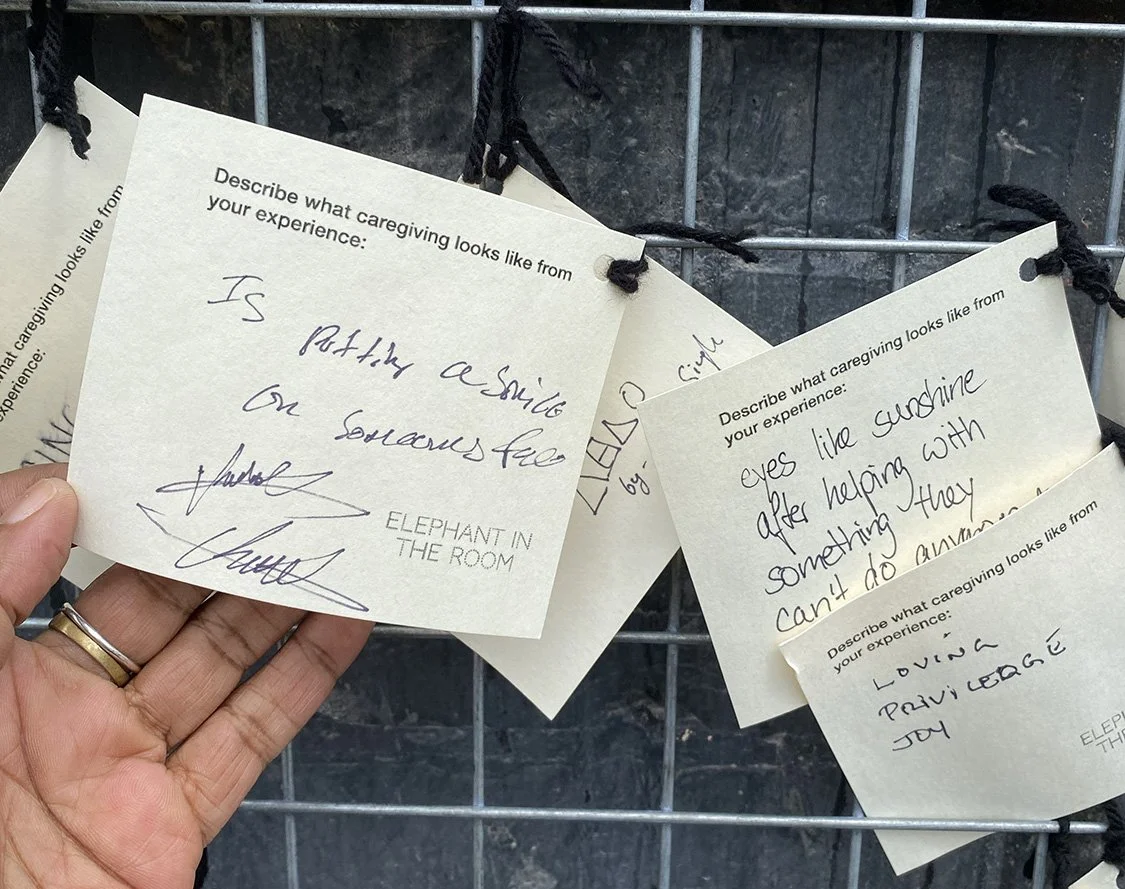 what caregiving looks like from
experience:
ING
Describe what caregiving looks like from
your experience:
Is
Putting a Smile
on Someones face
ELEPHANT IN
THE ROOM
Single
by-
Describe what caregiving looks like from
your experience:
eyes like sunshine
after helping with
something they
can't do anymore
Describe what caregiving looks like from
your experience:
LOVING
PRIVILEDGE
JOY
ELEP
THE